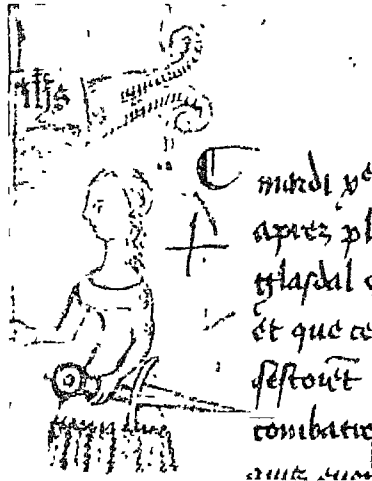 ihs
mardi xe
aprez pl
glasdal c
et que ce
sestoiēt
combatre